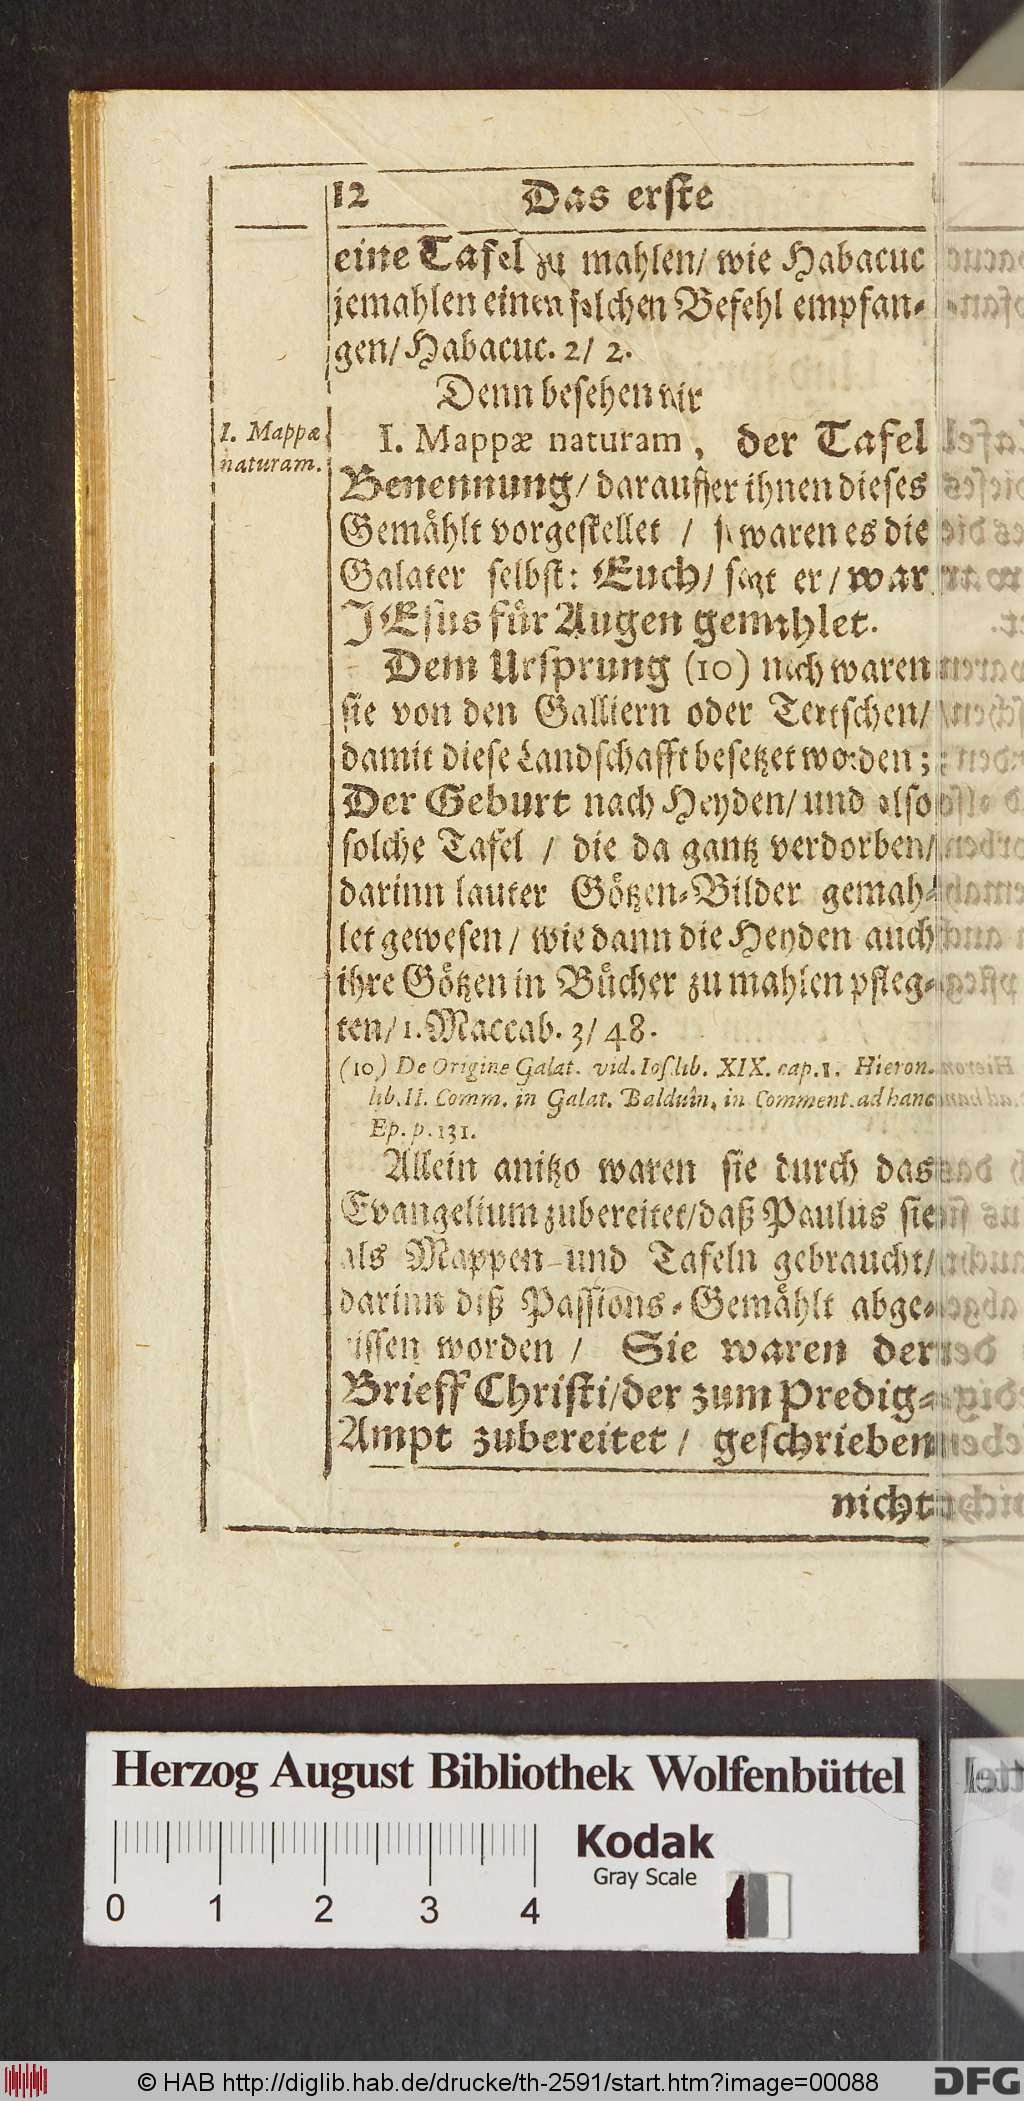 12 Das erste
eine Tafel zu mahlen/ wie Habacuc
jemahlen einen solchen Befehl empfan-
gen/ Habacuc. 2/ 2.
Denn besehen wir
I. Mappæ
naturam.
I. Mappæ naturam, der Tafel
Benennung/ darauff er ihnen dieses
Gemåhlt vorgestellet / so waren es die
Galater selbst: Euch/ sagt er/ war
JEsus fůr Augen gemahlet.
Dem Ursprung (10) nach waren
sie von den Galliern oder Teutschen/
damit diese Landschafft besetzet worden;
Der Geburt nach Heyden/ und also
solche Tafel / die da gantz verdorben/
darinn lauter Gőtzen-Bilder gemah-
let gewesen / wie dann die Heyden auch
ihre Gőtzen in Bůcher zu mahlen pfleg-
ten/ 1. Maccab. 3/ 48.
(10) De Origine Galat. vid. Ios. lib. XIX. cap. 1. Hieron.
lib. II. Comm. in Galat. Balduin, in Comment. ad hanc
Ep. p. 131.
Allein anitzo waren sie durch das
Evangelium zubereitet/ daß Paulus sie
als Mappen und Tafeln gebraucht/
darinn diß Passions-Gemåhlt abge-
rissen worden / Sie waren der
Brieff Christi/ der zum Predig-
Ampt zubereitet / geschrieben
nicht
Herzog August Bibliothek Wolfenbüttel
Kodak
Gray Scale
0 1 2 3 4
© HAB http://diglib.hab.de/drucke/th-2591/start.htm?image=00088
DFG